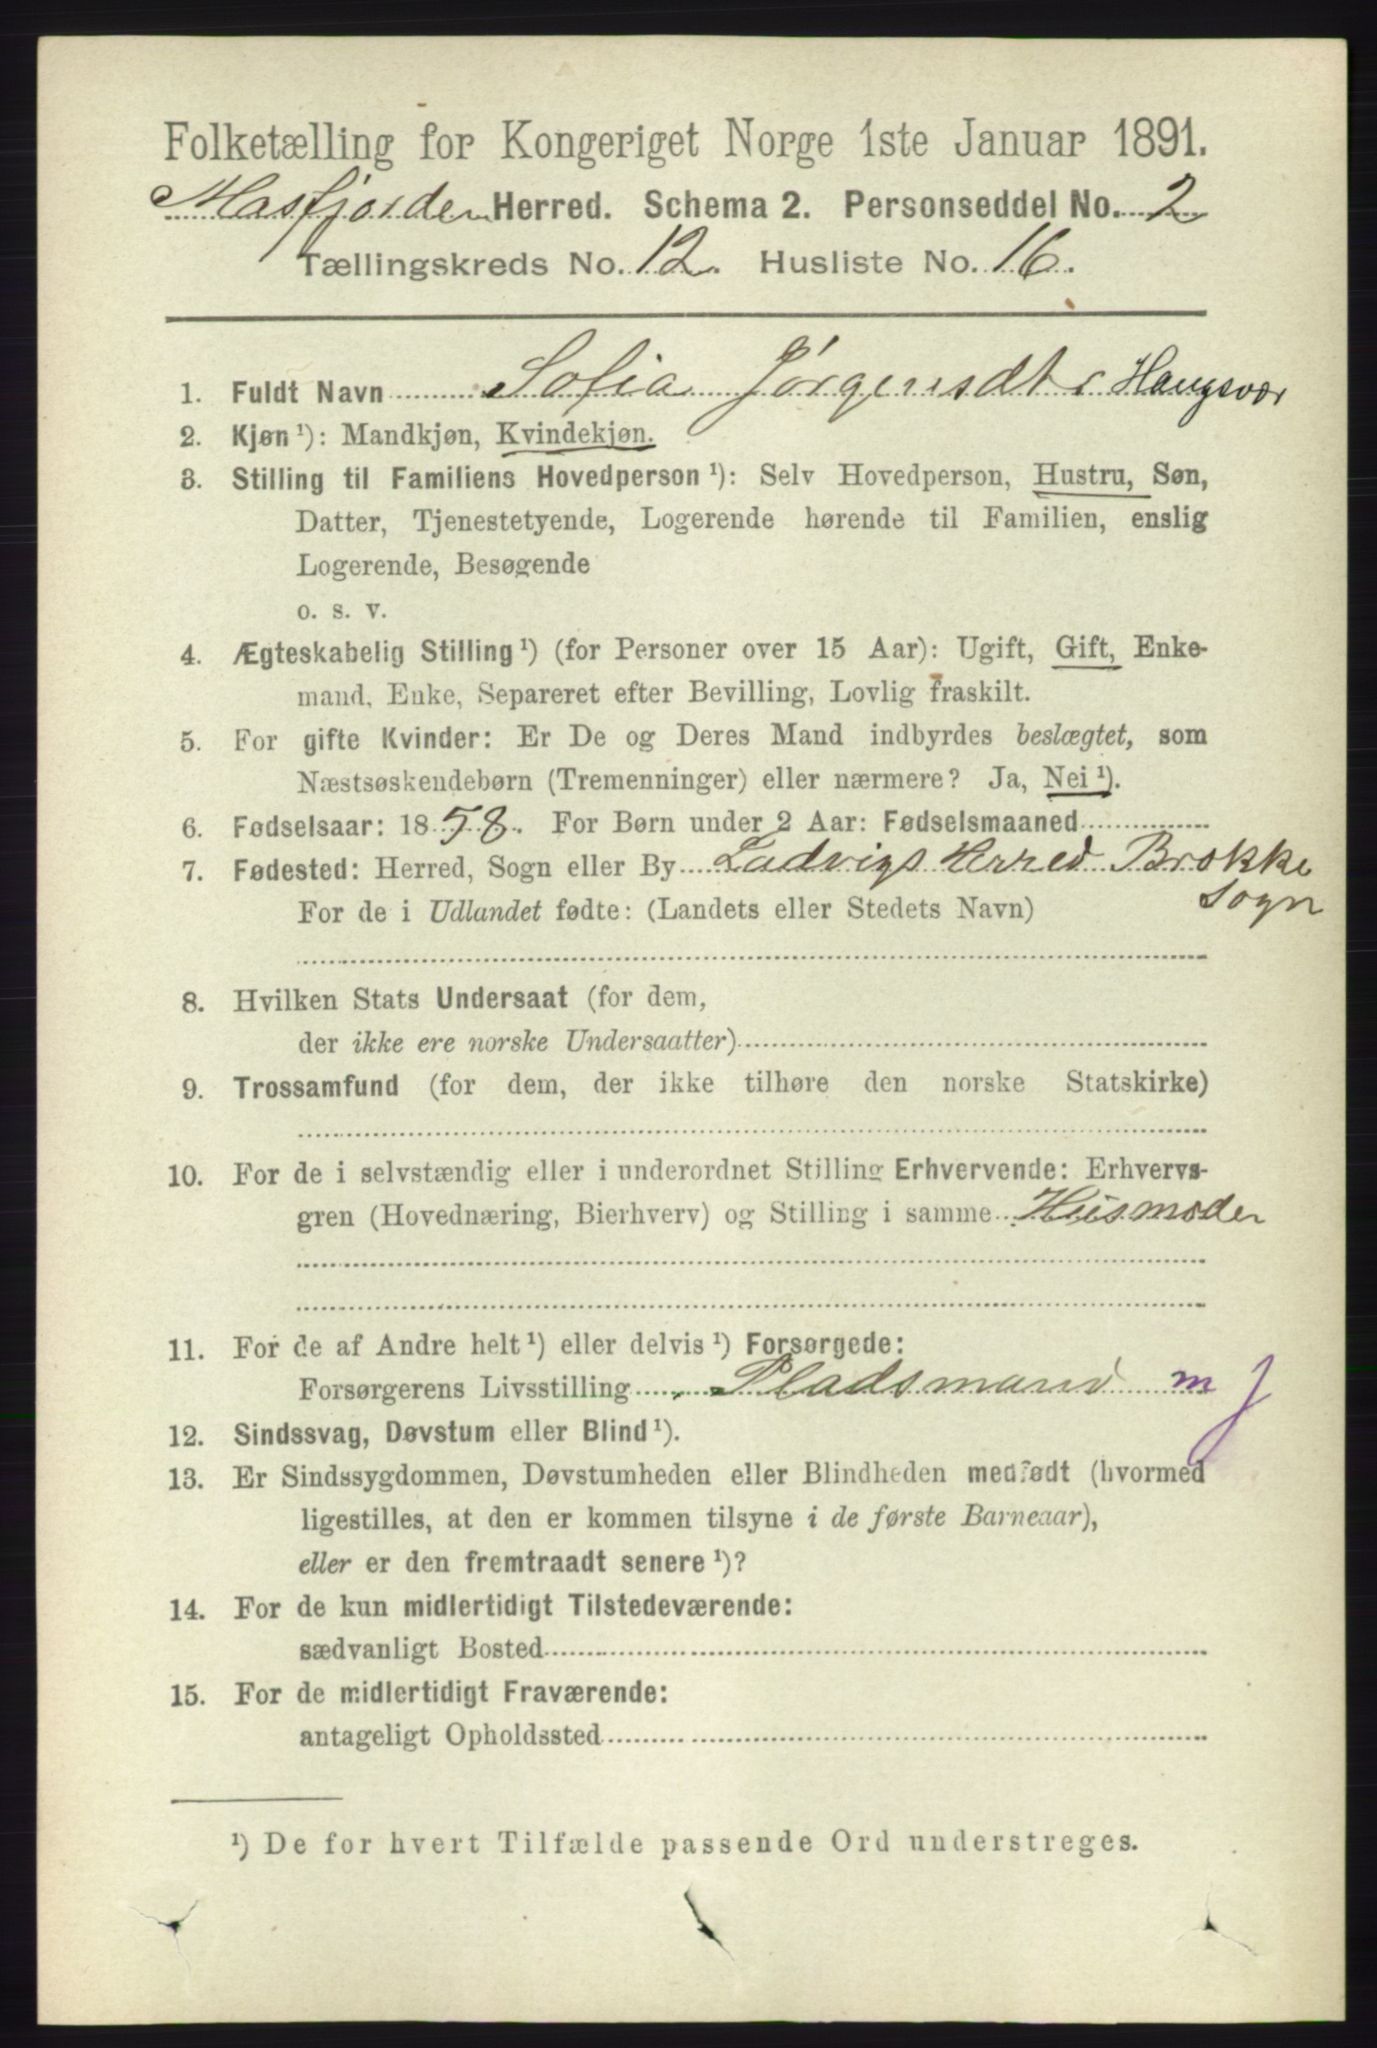 Folketælling for Kongeriget Norge 1ste Januar 1891.
Masfjorden Herred. Schema 2. Personseddel No. 2
Tællingskreds No. 12. Husliste No. 16.
1. Fuldt Navn Sofia Jörgensdtr Haugsvær
2. Kjøn ¹): Mandkjøn, Kvindekjøn.
3. Stilling til Familiens Hovedperson ¹): Selv Hovedperson, Hustru, Søn,
Datter, Tjenestetyende, Logerende hørende til Familien, enslig
Logerende, Besøgende
o. s. v.
4. Ægteskabelig Stilling ¹) (for Personer over 15 Aar): Ugift, Gift, Enke-
mand, Enke, Separeret efter Bevilling, Lovlig fraskilt.
5. For gifte Kvinder: Er De og Deres Mand indbyrdes beslægtet, som
Næstsøskendebørn (Tremenninger) eller nærmere? Ja, Nei ¹).
6. Fødselsaar: 1858. For Børn under 2 Aar: Fødselsmaaned
7. Fødested: Herred, Sogn eller By Ladvigs Herred Brække
Sogn
For de i Udlandet fødte: (Landets eller Stedets Navn)
8. Hvilken Stats Undersaat (for dem,
der ikke ere norske Undersaatter)
9. Trossamfund (for dem, der ikke tilhøre den norske Statskirke)
10. For de i selvstændig eller i underordnet Stilling Erhvervende: Erhvervs-
gren (Hovednæring, Bierhverv) og Stilling i samme Husmoder
11. For de af Andre helt ¹) eller delvis ¹) Forsørgede:
Forsørgerens Livsstilling Pladsmand m J
12. Sindssvag, Døvstum eller Blind ¹).
13. Er Sindssygdommen, Døvstumheden eller Blindheden medfødt (hvormed
ligestilles, at den er kommen tilsyne i de første Barneaar),
eller er den fremtraadt senere ¹)?
14. For de kun midlertidigt Tilstedeværende:
sædvanligt Bosted
15. For de midlertidigt Fraværende:
antageligt Opholdssted
¹) De for hvert Tilfælde passende Ord understreges.